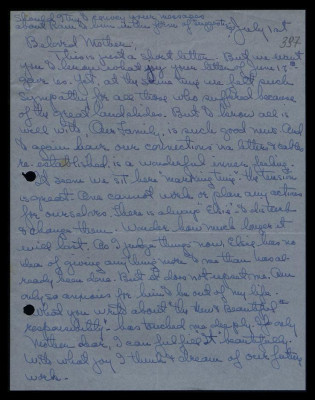 about
July 1st
387
Beloved Mother,
This is just a short letter. But we want
you to know what joy your letter of June 13th
gave us. Yet, at the same time we felt such
sympathy for all those who suffered because
of the great landslides. But to know all is
well with Our Family, is such good news. And
to again have our connections via letter & cable
re-established is a wonderful inner feeling.
It seems we sit here "marking time". The tension
is great. One cannot work or plan any actions
for ourselves. There is always Chris to disturb
& change them. Wonder how much longer it
will last. As I judge things now Chris has no
idea of giving anything more to me than has al-
ready been done. But it does not upset me. Am
only so anxious for him to be out of my life.
What you write about "the New & Beautiful
responsibility" has touched me deeply. If only
Mother dear, I can fulfil it beautifully.
With what joy I think & dream of our future
work.